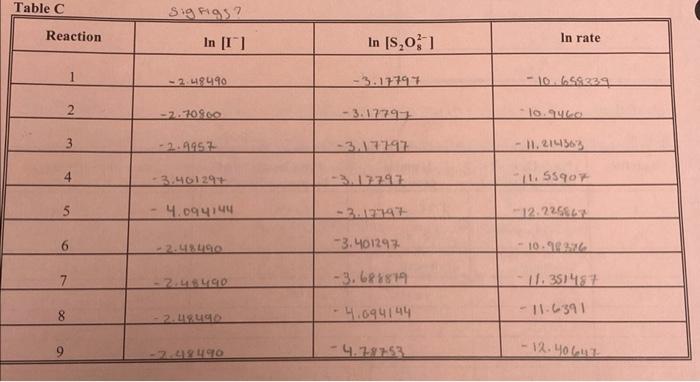 Table C Sig Figs?
Reaction ln [I⁻] ln [S₂O₈²⁻] ln rate
1 -2.48490 -3.17797 -10.658339
2 -2.70800 -3.17797 -10.9460
3 -2.9957 -3.17797 -11.214363
4 -3.401297 -3.17797 -11.55907
5 -4.094144 -3.17797 -12.225567
6 -2.48490 -3.401297 -10.98376
7 -2.48490 -3.688879 -11.351487
8 -2.48490 -4.094144 -11.6391
9 -2.48490 -4.78753 -12.40647